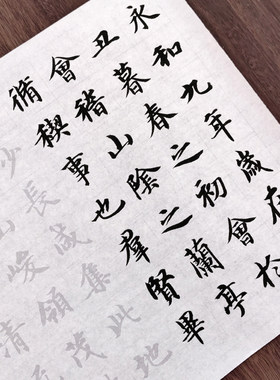 永和九年歲在
丑暮春之初會於
會稽山陰之蘭亭
脩稧事也羣賢畢
少長咸集此地
峻領茂
清